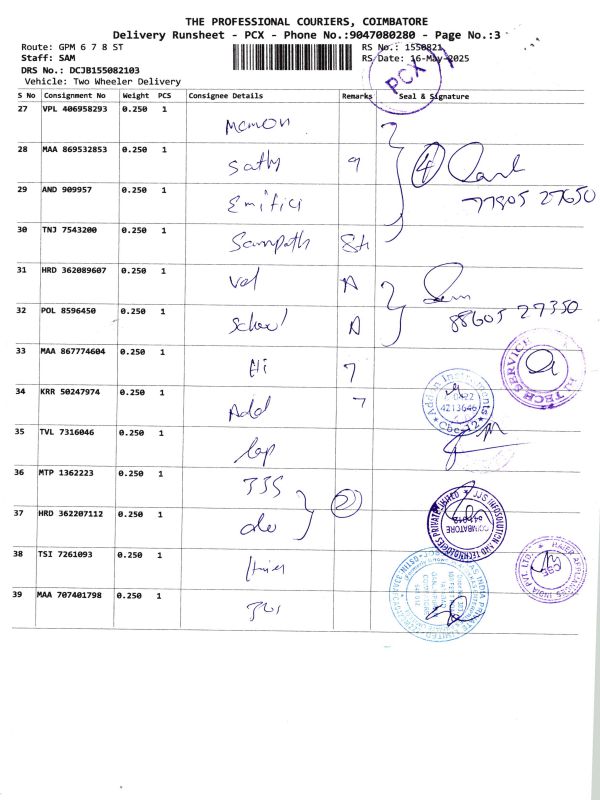 THE PROFESSIONAL COURIERS, COIMBATORE
Delivery Runsheet - PCX - Phone No.:9047080280 - Page No.:3
Route: GPM 6 7 8 ST
RS No.: 1550821
Staff: SAM
RS Date: 16-May-2025
DRS No.: DCJB155082103
Vehicle: Two Wheeler Delivery
PCX
S No Consignment No Weight PCS Consignee Details Remarks Seal & Signature
27 VPL 406958293 0.250 1 Memon
28 MAA 869532853 0.250 1 Sathy 9
4
29 AND 909957 0.250 1 Emitici
77805 27650
30 TNJ 7543200 0.250 1 Sampath
31 HRD 362089607 0.250 1 Vel A
32 POL 8596450 0.250 1 School A
88605 27350
33 MAA 867774604 0.250 1 Hi 7
HITECH SERVICE
34 KRR 50247974 0.250 1 Add 7
Add on Instruments
0422
4213646
Cbe-12
35 TVL 7316046 0.250 1 Lap
36 MTP 1362223 0.250 1 JJS
2
37 HRD 362207112 0.250 1 do
JJS INFOSOLUTION AND TECHNOLOGIES PRIVATE LIMITED
COIMBATORE
641012
38 TSI 7261093 0.250 1
HAIER APPLIANCES INDIA PVT. LTD.
CBE
39 MAA 707401798 0.250 1
INDIA PRIVATE LIMITED